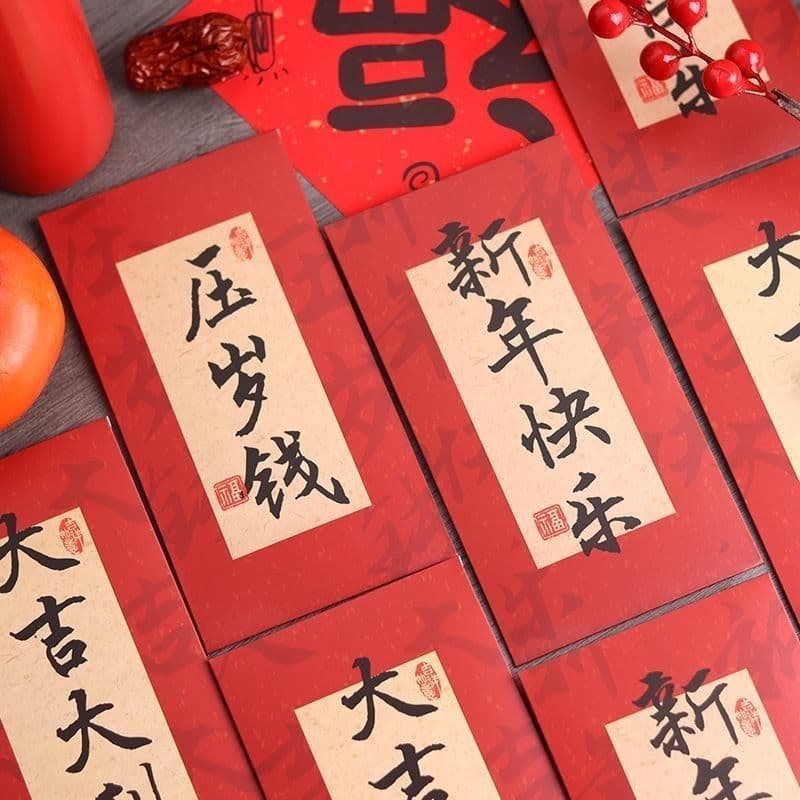 乐
福
压岁钱
福
新年快乐
福
大
大吉大利
大吉
新年